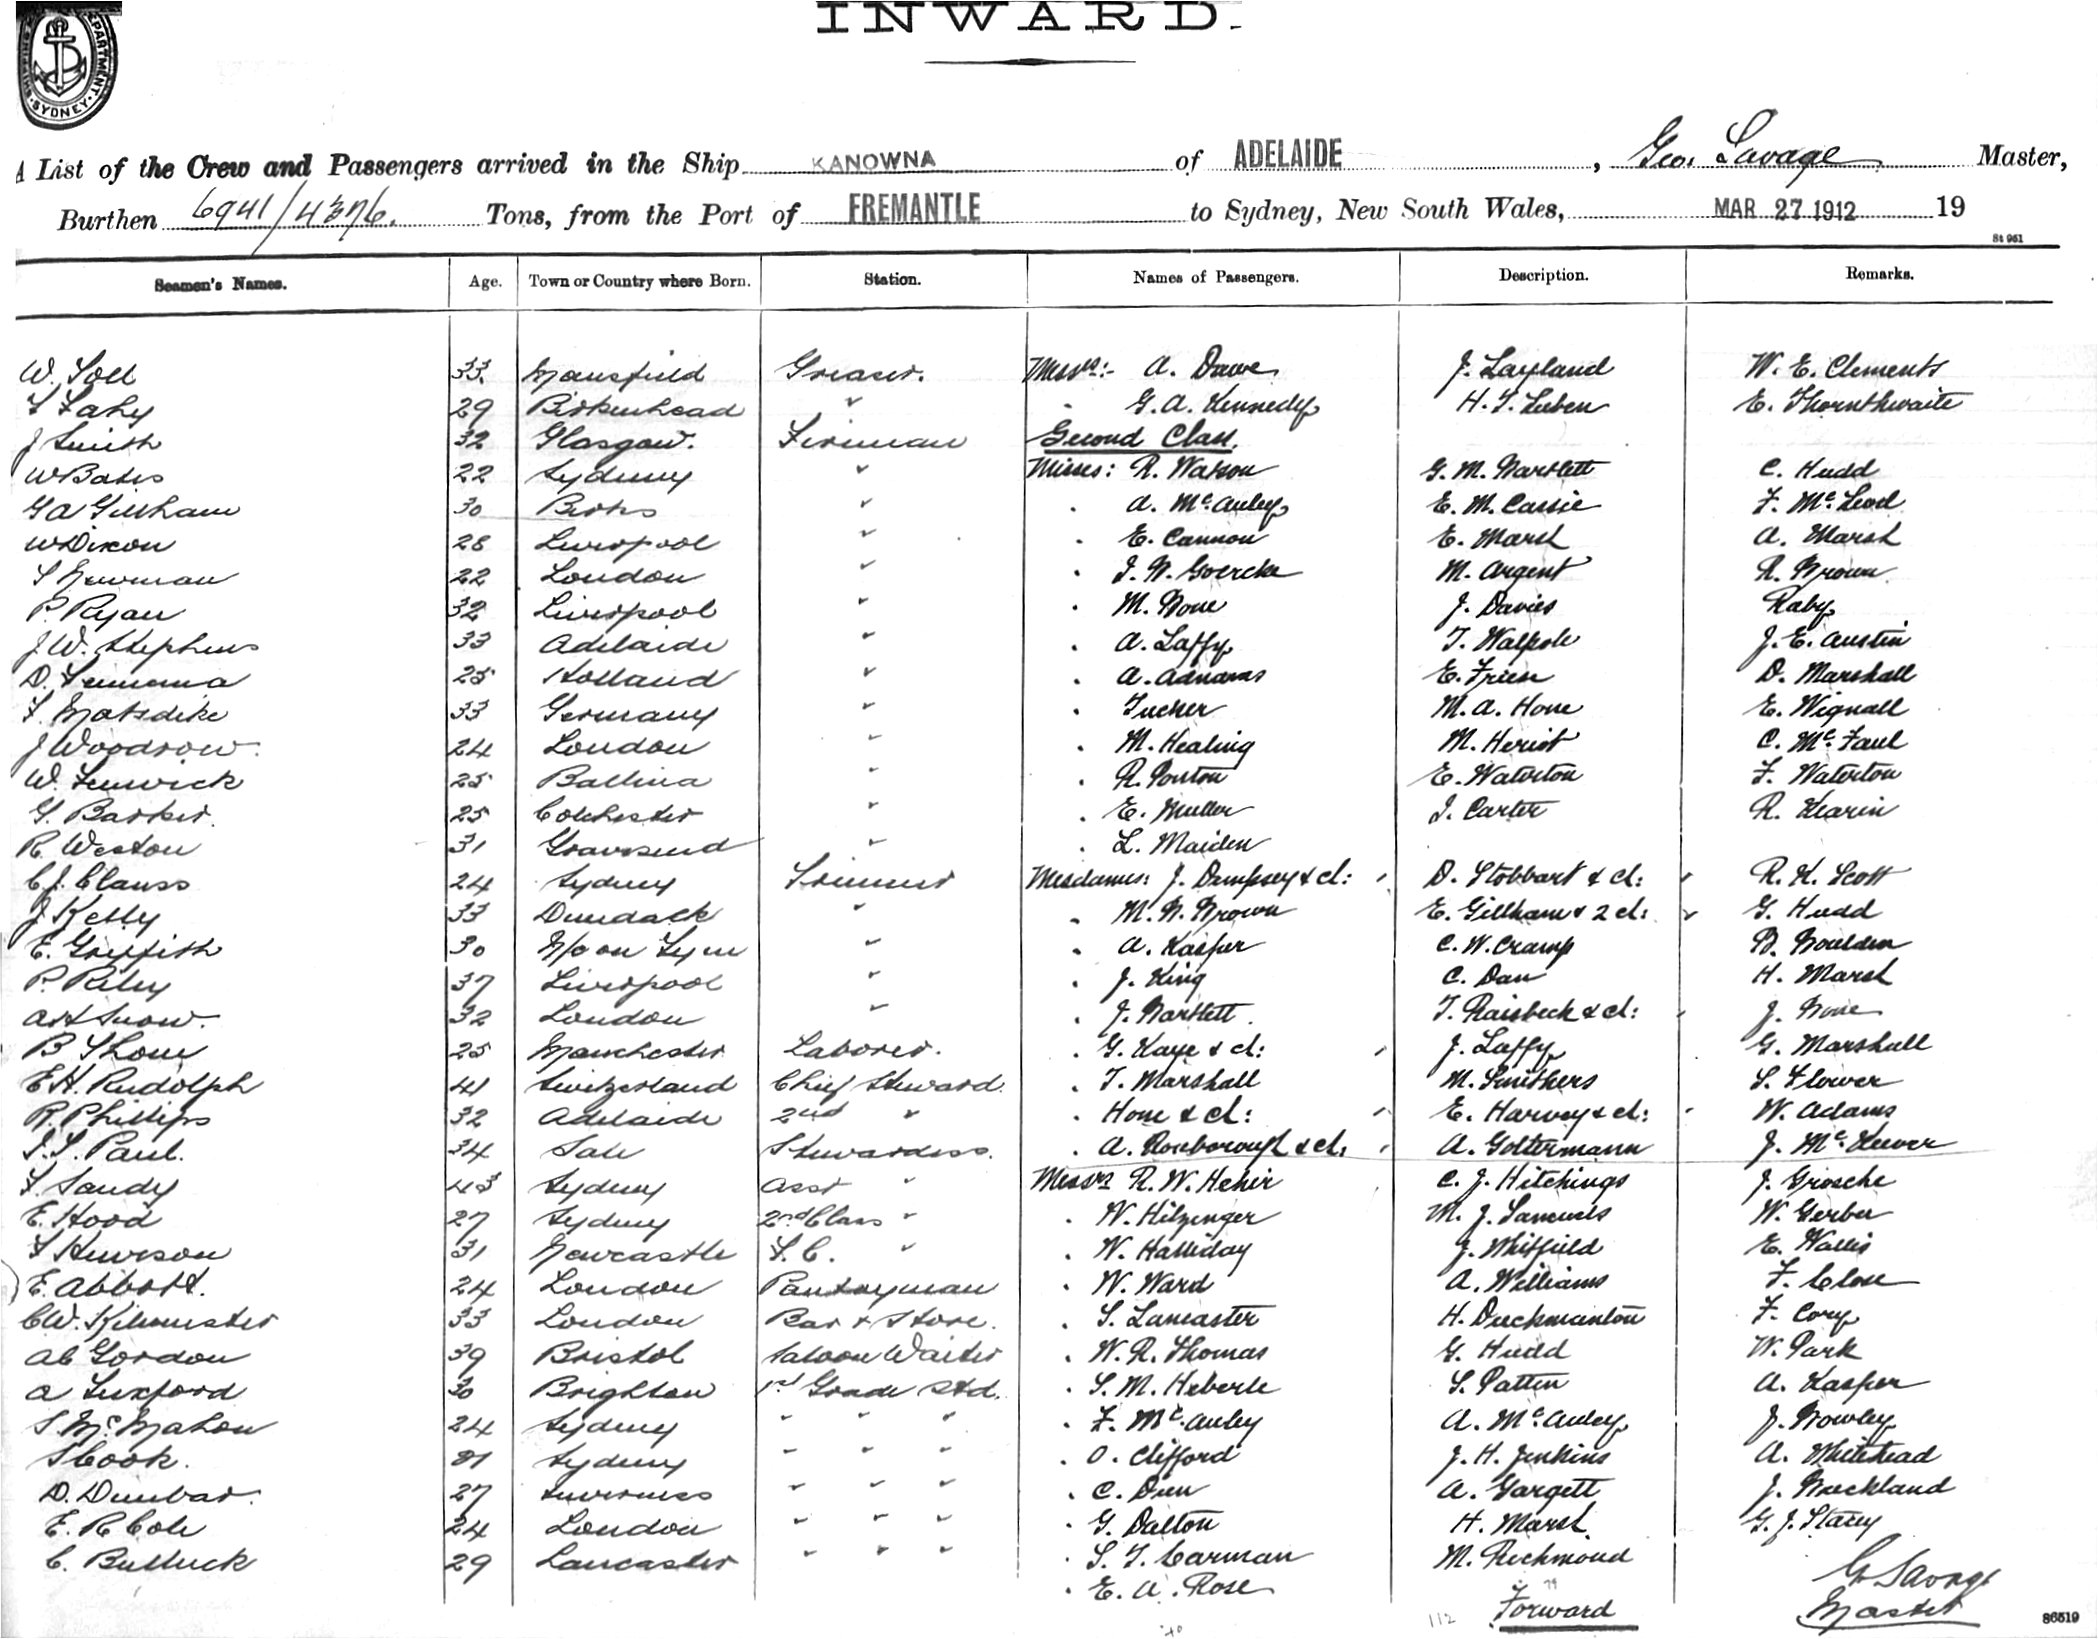 INWARD.
SYDNEY
A List of the Crew and Passengers arrived in the Ship KANOWNA of ADELAIDE, Geo. Savage Master,
Burthen 6941/4376. Tons, from the Port of FREMANTLE to Sydney, New South Wales, MAR 27 1912 19
St 961
Seamen's Names. Age. Town or Country where Born. Station. Names of Passengers. Description. Remarks.
W. Toll 33. Mansfield Greaser. Messrs:- A. Dawe J. Layland W. E. Clements
T Fahy 29 Birkenhead " " G. A. Kennedy H. T. Luben E. Thornthwaite
J Smith 32 Glasgow. Fireman Second Class.
W Bates 22 Sydney " Misses: R. Watson G. M. Bartlett C. Hudd
G A Gillham 30 Berks " " A. McAuley E. M. Cassie F. McLeod
W Dixon 28 Liverpool " " E. Cannon E. Marsh A. Marsh
S Newman 22 London " " J. W. Goercke M. Argent R. Brown
P. Ryan 32 Liverpool " " M. Bone J. Davies Raby
J W. Stephens 33 Adelaide " " A. Laffy T. Walpole J. E. Austin
D. 25 Holland " " A. Adnams E. Friese D. Marshall
F. 33 Germany " " Tucher M. A. Hone E. Wignall
J Woodrow. 24 London " " M. Healing M. Heriot C. McFaul
W. Fenwick 25 Ballina " " R. Porton E. Waterton F. Waterton
G. Barker. 25 Colchester " " E. Muller I. Carter R. Kearin
R. Weston 31 Gravesend " " L. Maiden
C J. Clauss 24 Sydney Trimmer Mesdames: J. Dempsey & ch: D. Stobbart & ch: R. K. Scott
J Kelly 33 Dundalk " " M. B. Brown E. Gillham & 2 ch: G. Hudd
E. Griffith 30 N/c on Tyne " " A. Kasper C. W. Cramp B. Boulden
P. Riley 37 Liverpool " " J. King C. Dan H. Marsh
A H Snow. 32 London " " J. Bartlett. T. Raisbeck & ch: J. Bone
B Thom 25 Manchester Laborer. " G. Kaye & ch: J. Laffy G. Marshall
E. H. Rudolph 41 Switzerland Chief Steward. " T. Marshall M. Smithers S. Flower
R. Phillips 32 Adelaide 2nd " " Hone & ch: E. Harvey & ch: W. Adams
I. S. Paul. 34 Sale Stewardess. " A. Roxborough & ch: A. Goltermann J. McKeever
F. Sandy 43 Sydney Asst " Messrs R. W. Hehir C. J. Hitchings J. Grosche
E. Hood 27 Sydney 2nd Class " " W. Hilzinger M. J. Samuels W. Gerber
F Hewson 31 Newcastle F. C. " " W. Halliday J. Whitfield E. Wallis
E. Abbott. 24 London Pantryman " W. Ward A. Williams F. Close
C W. Kilminster 33 London Bar & Store. " S. Lancaster H. Duckmanton F. Cory
A C Gordon 39 Bristol Saloon Waiter " W. R. Thomas G. Hudd W. Park
A Luxford 30 Brighton 1st Grade Std. " S. M. Heberle S. Patten A. Kasper
S. McMahon 24 Sydney " " " " F. McAuley A. McAuley J. Bowley
S Cook. 21 Sydney " " " " O. Clifford J. H. Jenkins A. Whitehead
D. Dunbar. 27 Inverness " " " " C. Dun A. Gargett J. Buckland
E. R Cole 24 London " " " " G. Dalton H. Marsh G. J. Stacey
C. Bulluck 29 Lancaster " " " " S. T. Carman M. Richmond
" E. A. Rose
G Savage
Master
112 Forward
86519